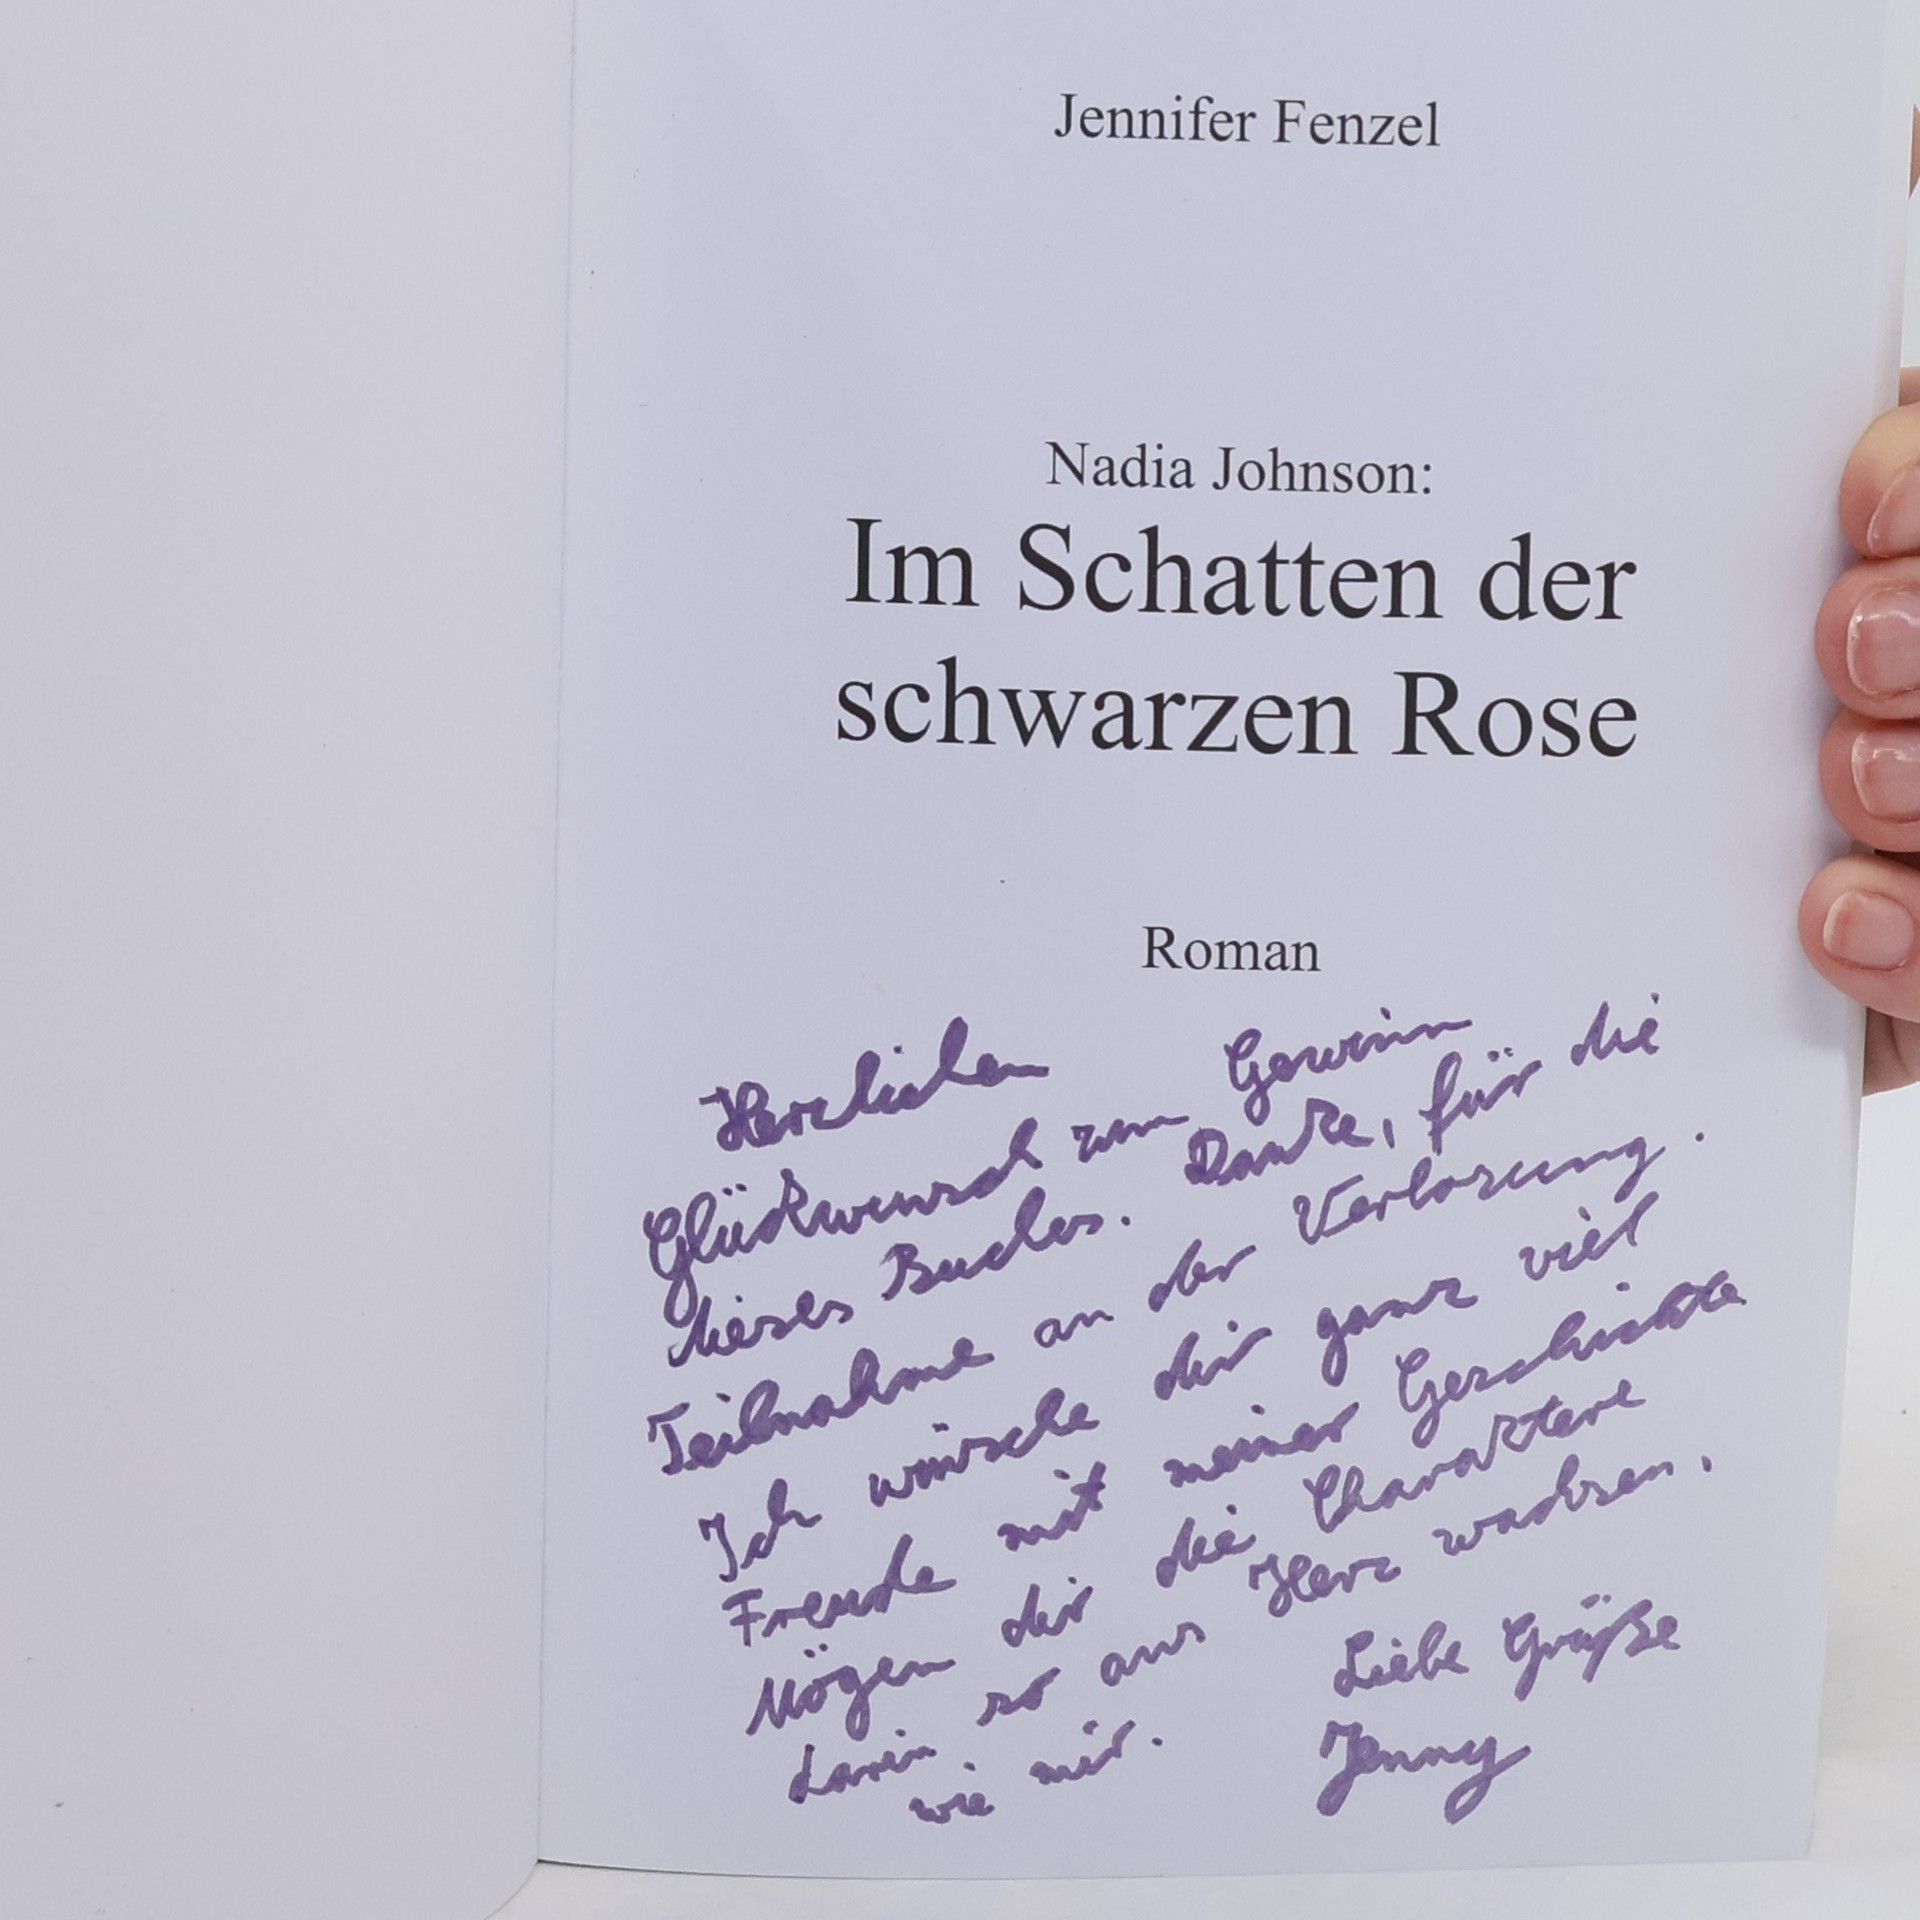 Jennifer Fenzel
Nadia Johnson:
Im Schatten der
schwarzen Rose
Roman
Herzlichen
Glückwunsch zum Gewinn
dieses Buches. Danke, für die
Teilnahme an der Verlosung.
Ich wünsche dir ganz viel
Freude mit meiner Geschichte
Mögen dir die Charaktere
darin so ans Herz wachsen,
wie mir.
Liebe Grüße
Jenny